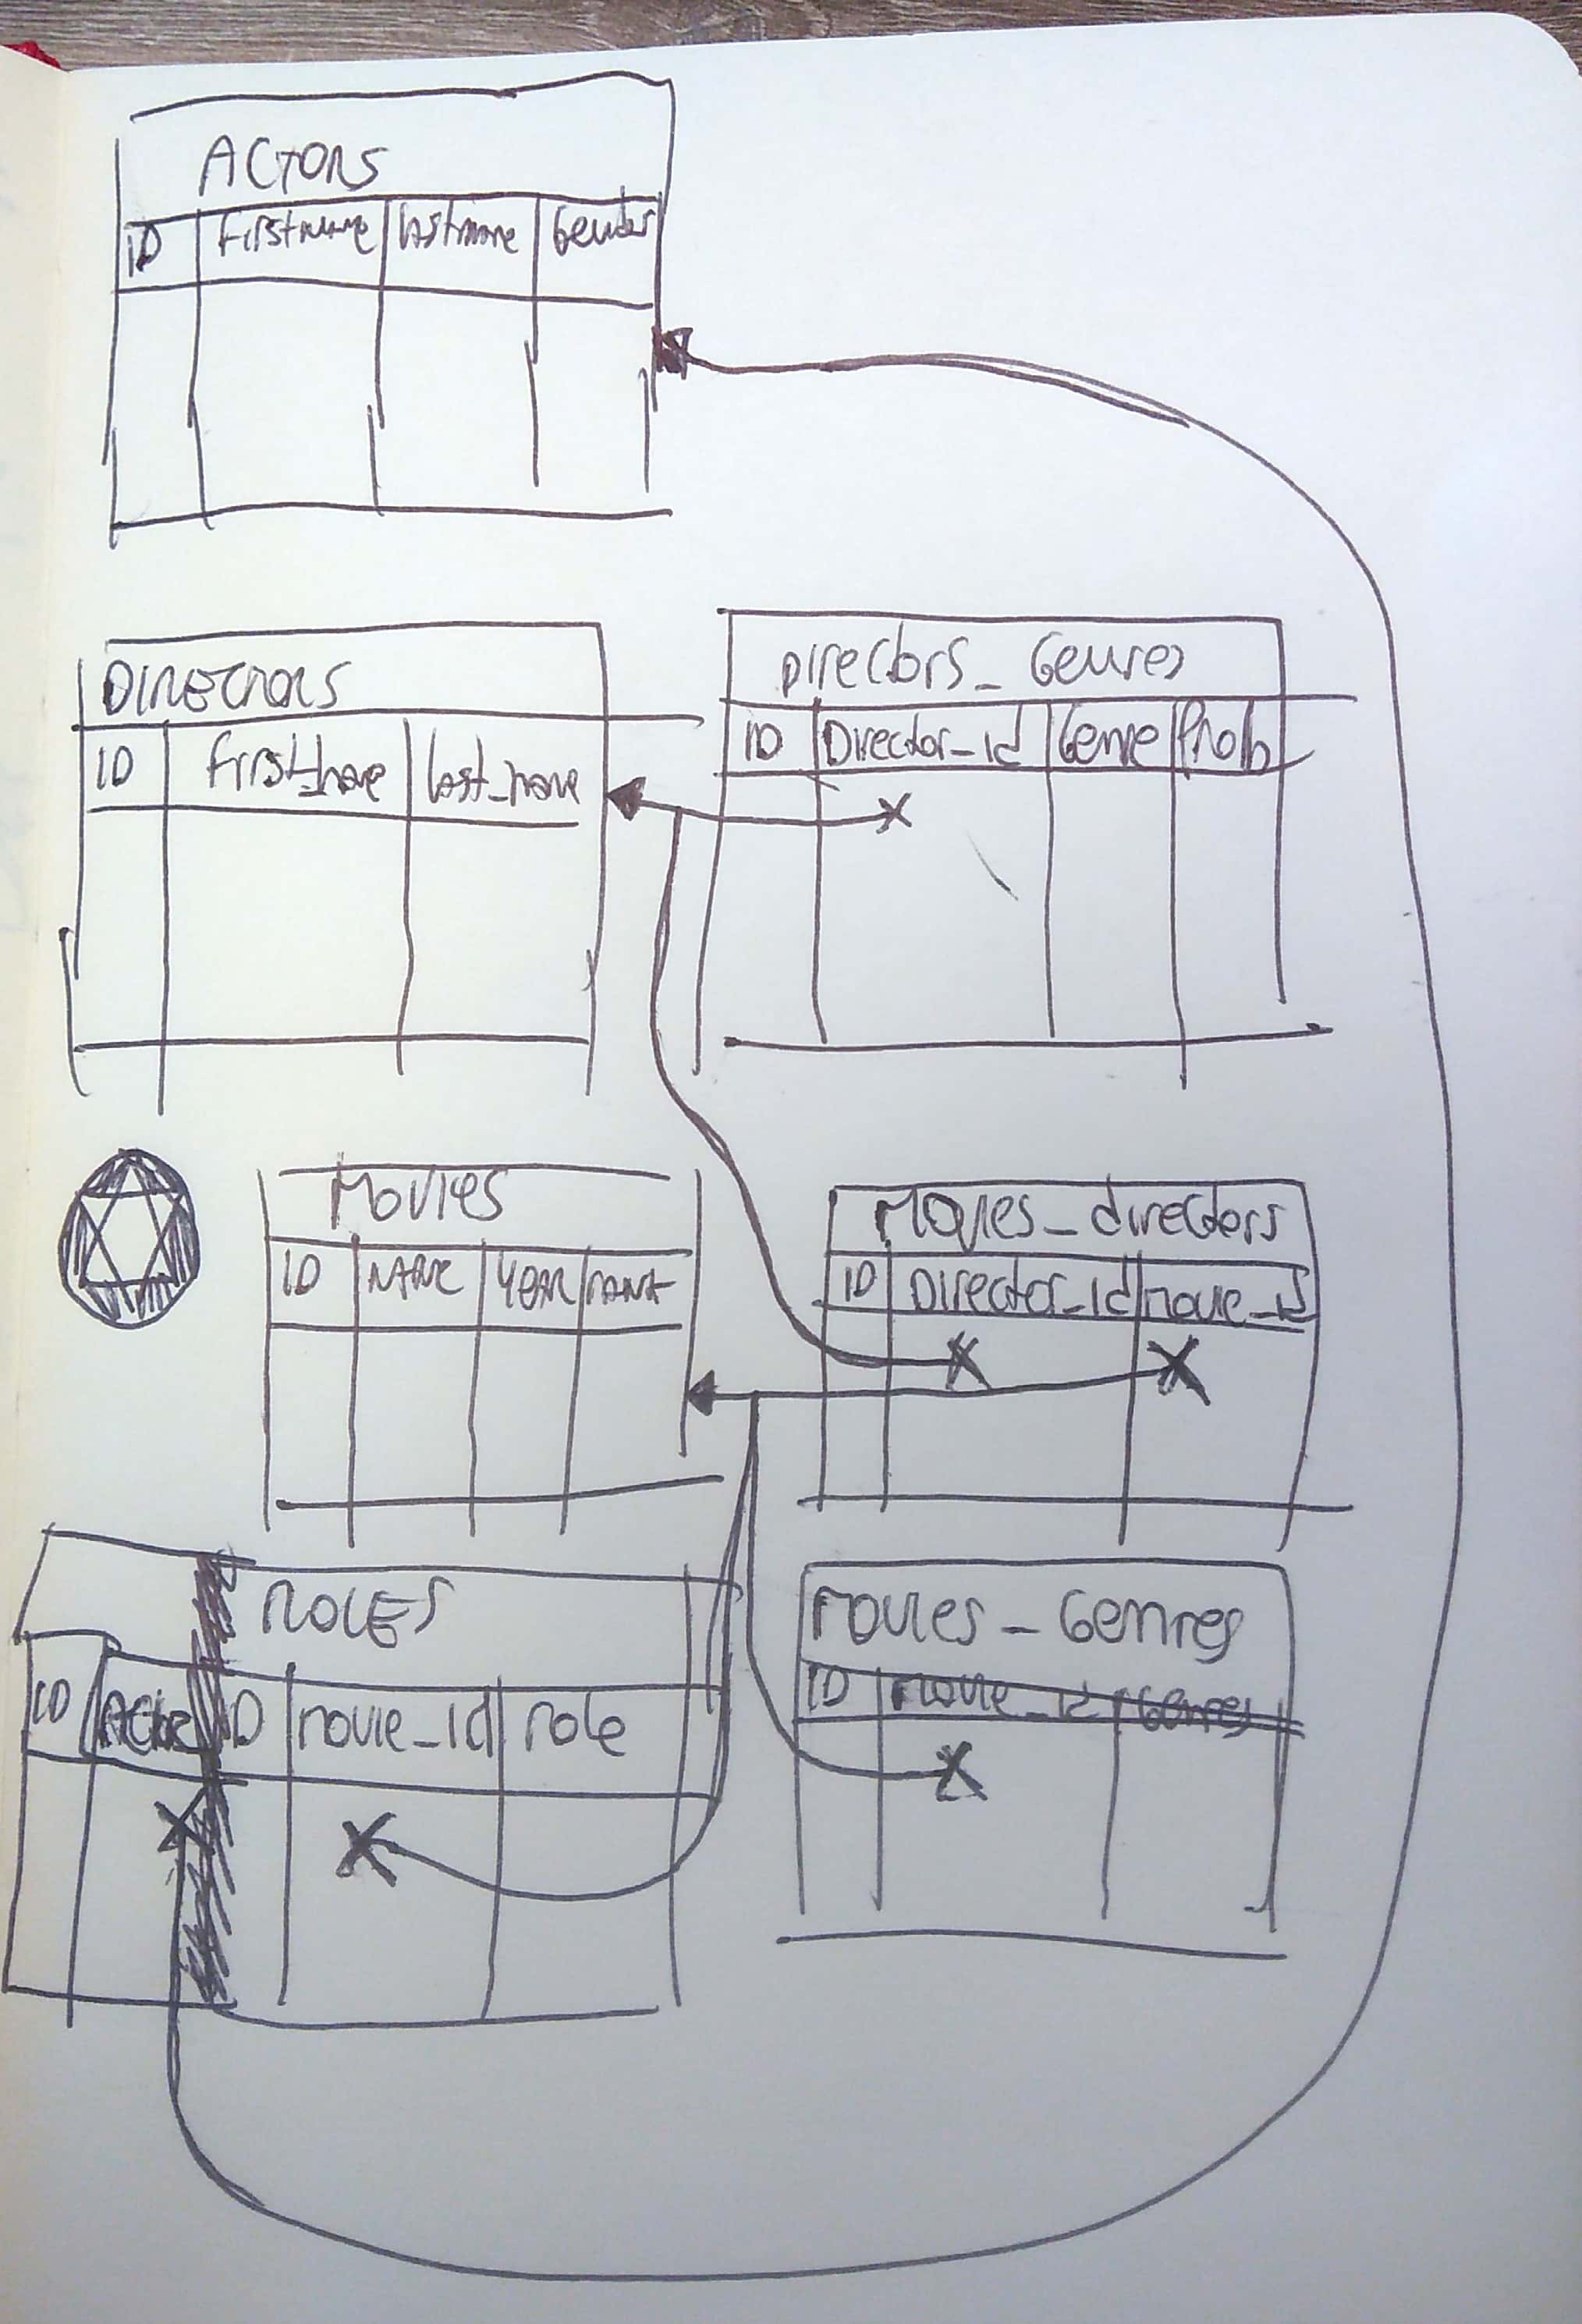 ACTORS
ID Firstname lastname Gender
DIRECTORS
ID first_name last_name
Directors_Genres
ID Director_id Genre Prob
Movies
ID NAME YEAR RANK
Movies_directors
ID Director_id movie_id
ROLES
ID Actor ID movie_id role
Movies_Genres
ID movie_id Genres